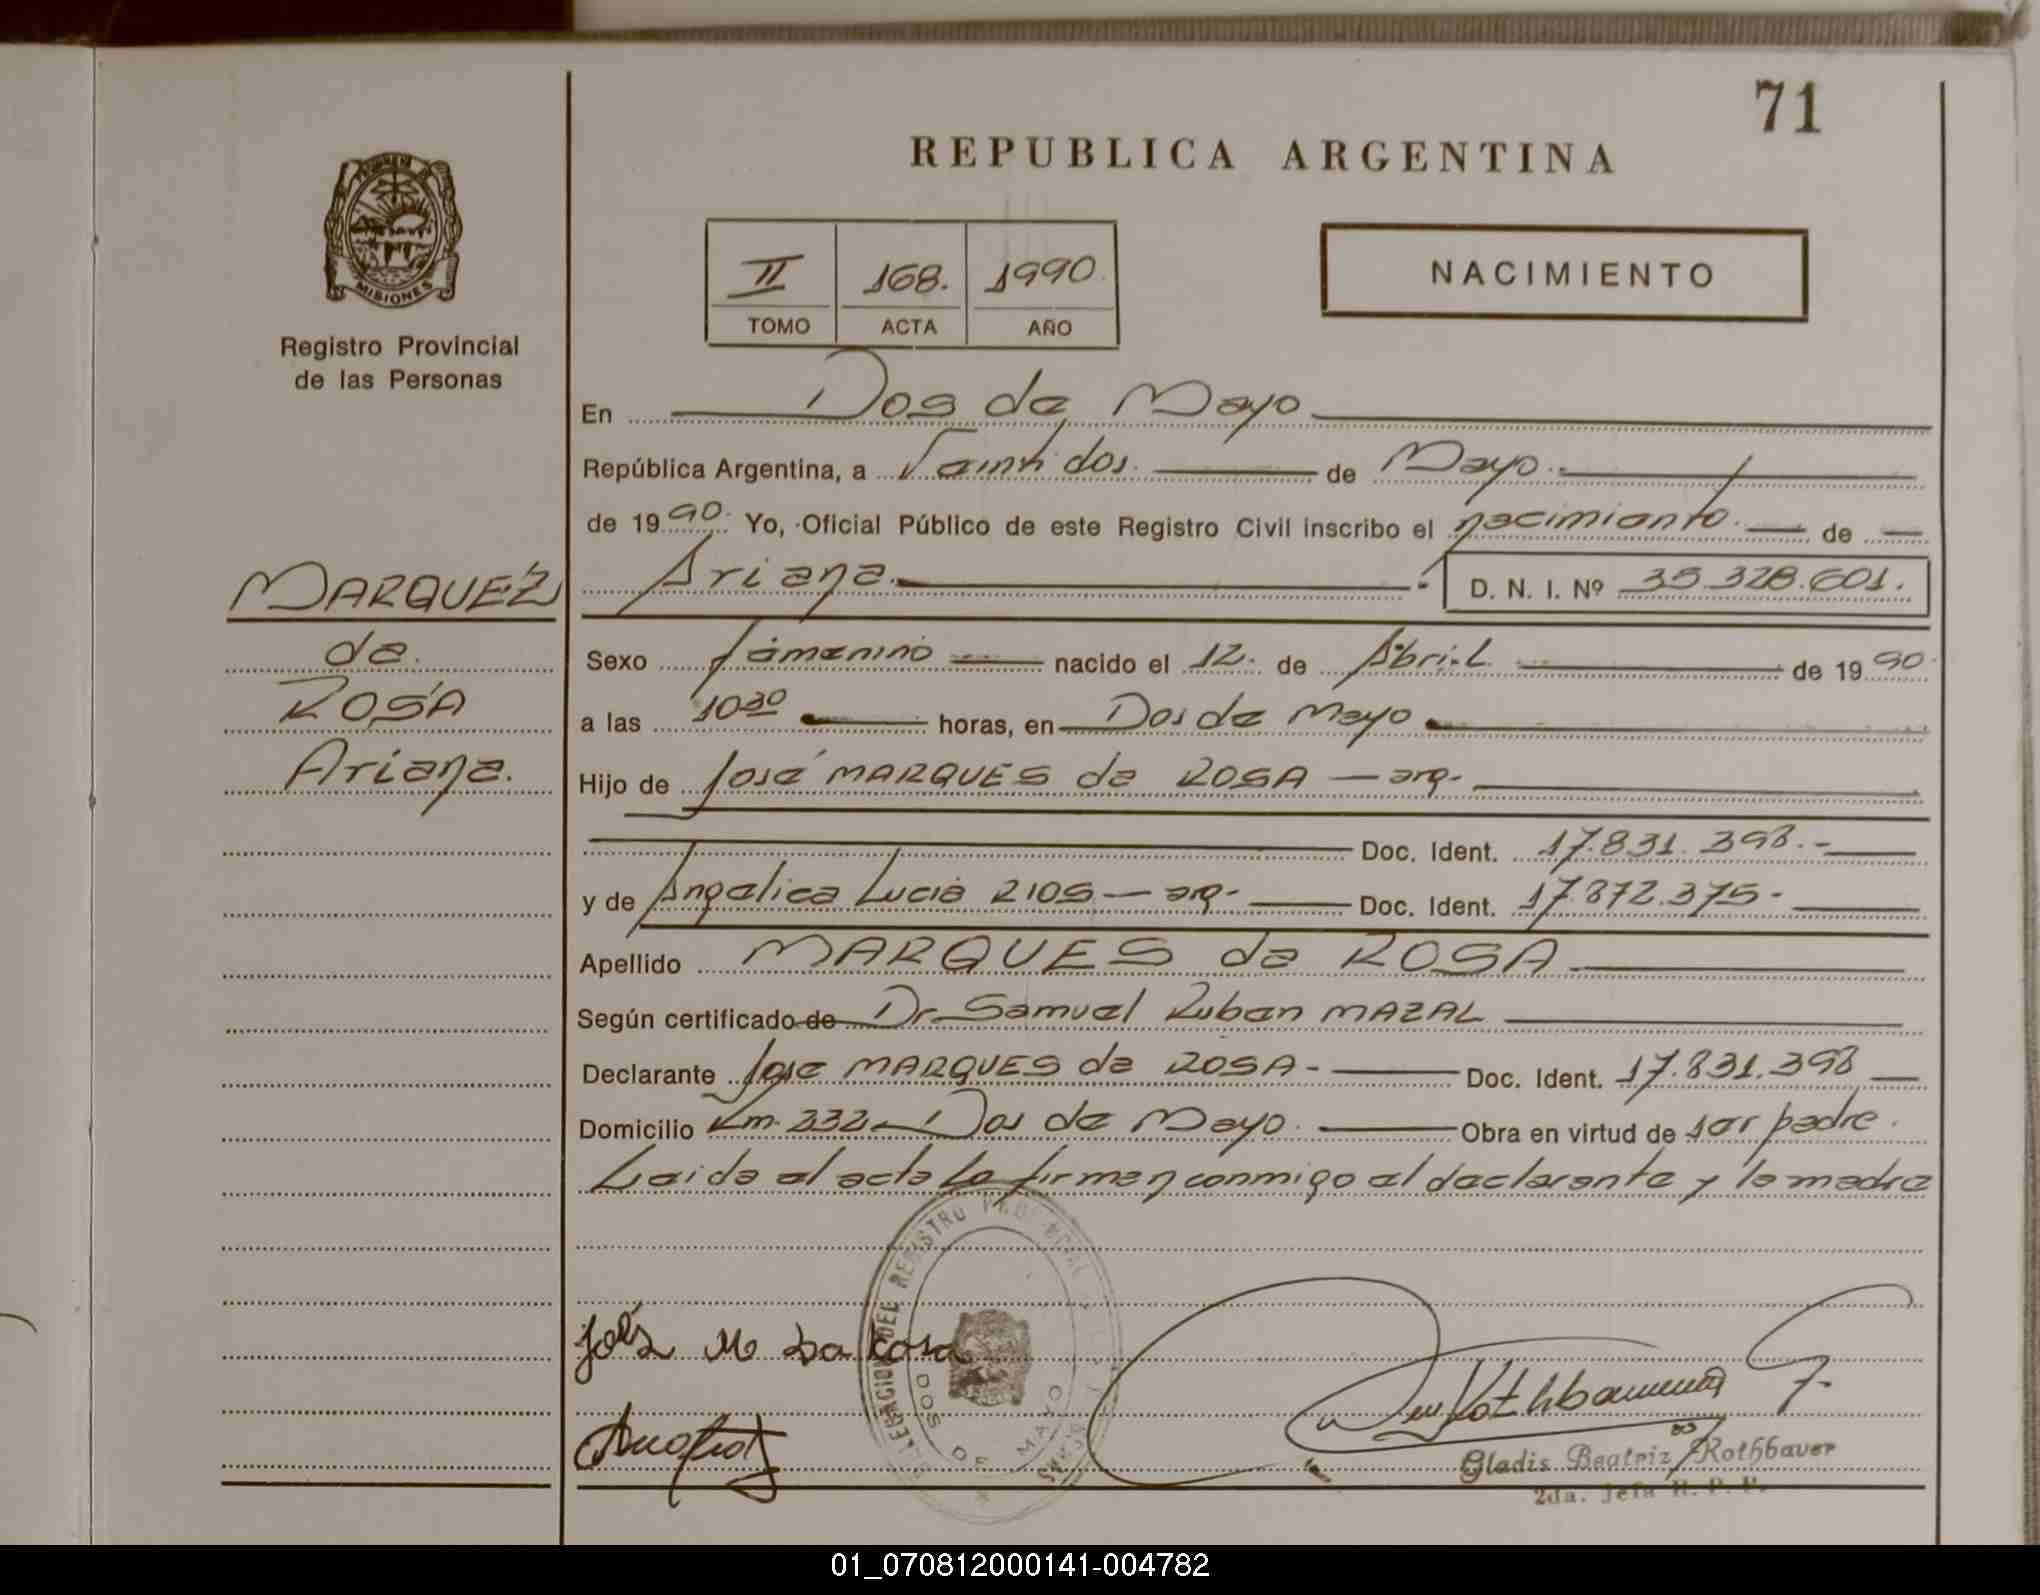 71
REPUBLICA ARGENTINA
MISIONES
Registro Provincial
de las Personas
II 168. 1990.
TOMO ACTA AÑO
NACIMIENTO
En Dos de Mayo
República Argentina, a Veintidos. de Mayo.
de 1990. Yo, Oficial Público de este Registro Civil inscribo el nacimiento. de
Ariana. D. N. I. Nº 35.328.601.
MARQUEZ
de
ROSA
Ariana.
Sexo femenino nacido el 12. de Abril. de 1990.
a las 10:30 horas, en Dos de Mayo
Hijo de José MARQUES de ROSA — arg.
Doc. Ident. 17.831.398.-
y de Angelica Lucia RIOS — arg- Doc. Ident. 17.872.375-
Apellido MARQUES de ROSA
Según certificado de Dr. Samuel Ruben MAZAL
Declarante Jose MARQUES de ROSA - Doc. Ident. 17.831.398
Domicilio Km. 232 - Dos de Mayo. Obra en virtud de ser padre.
Leida el acta la firman conmigo el declarante y la madre
José M Da Rosa
DELEGACION DEL REGISTRO
DOS DE MAYO
Rothbauer
Gladis Beatriz Rothbauer
2da. Jefa R. P. P.
01_070812000141-004782